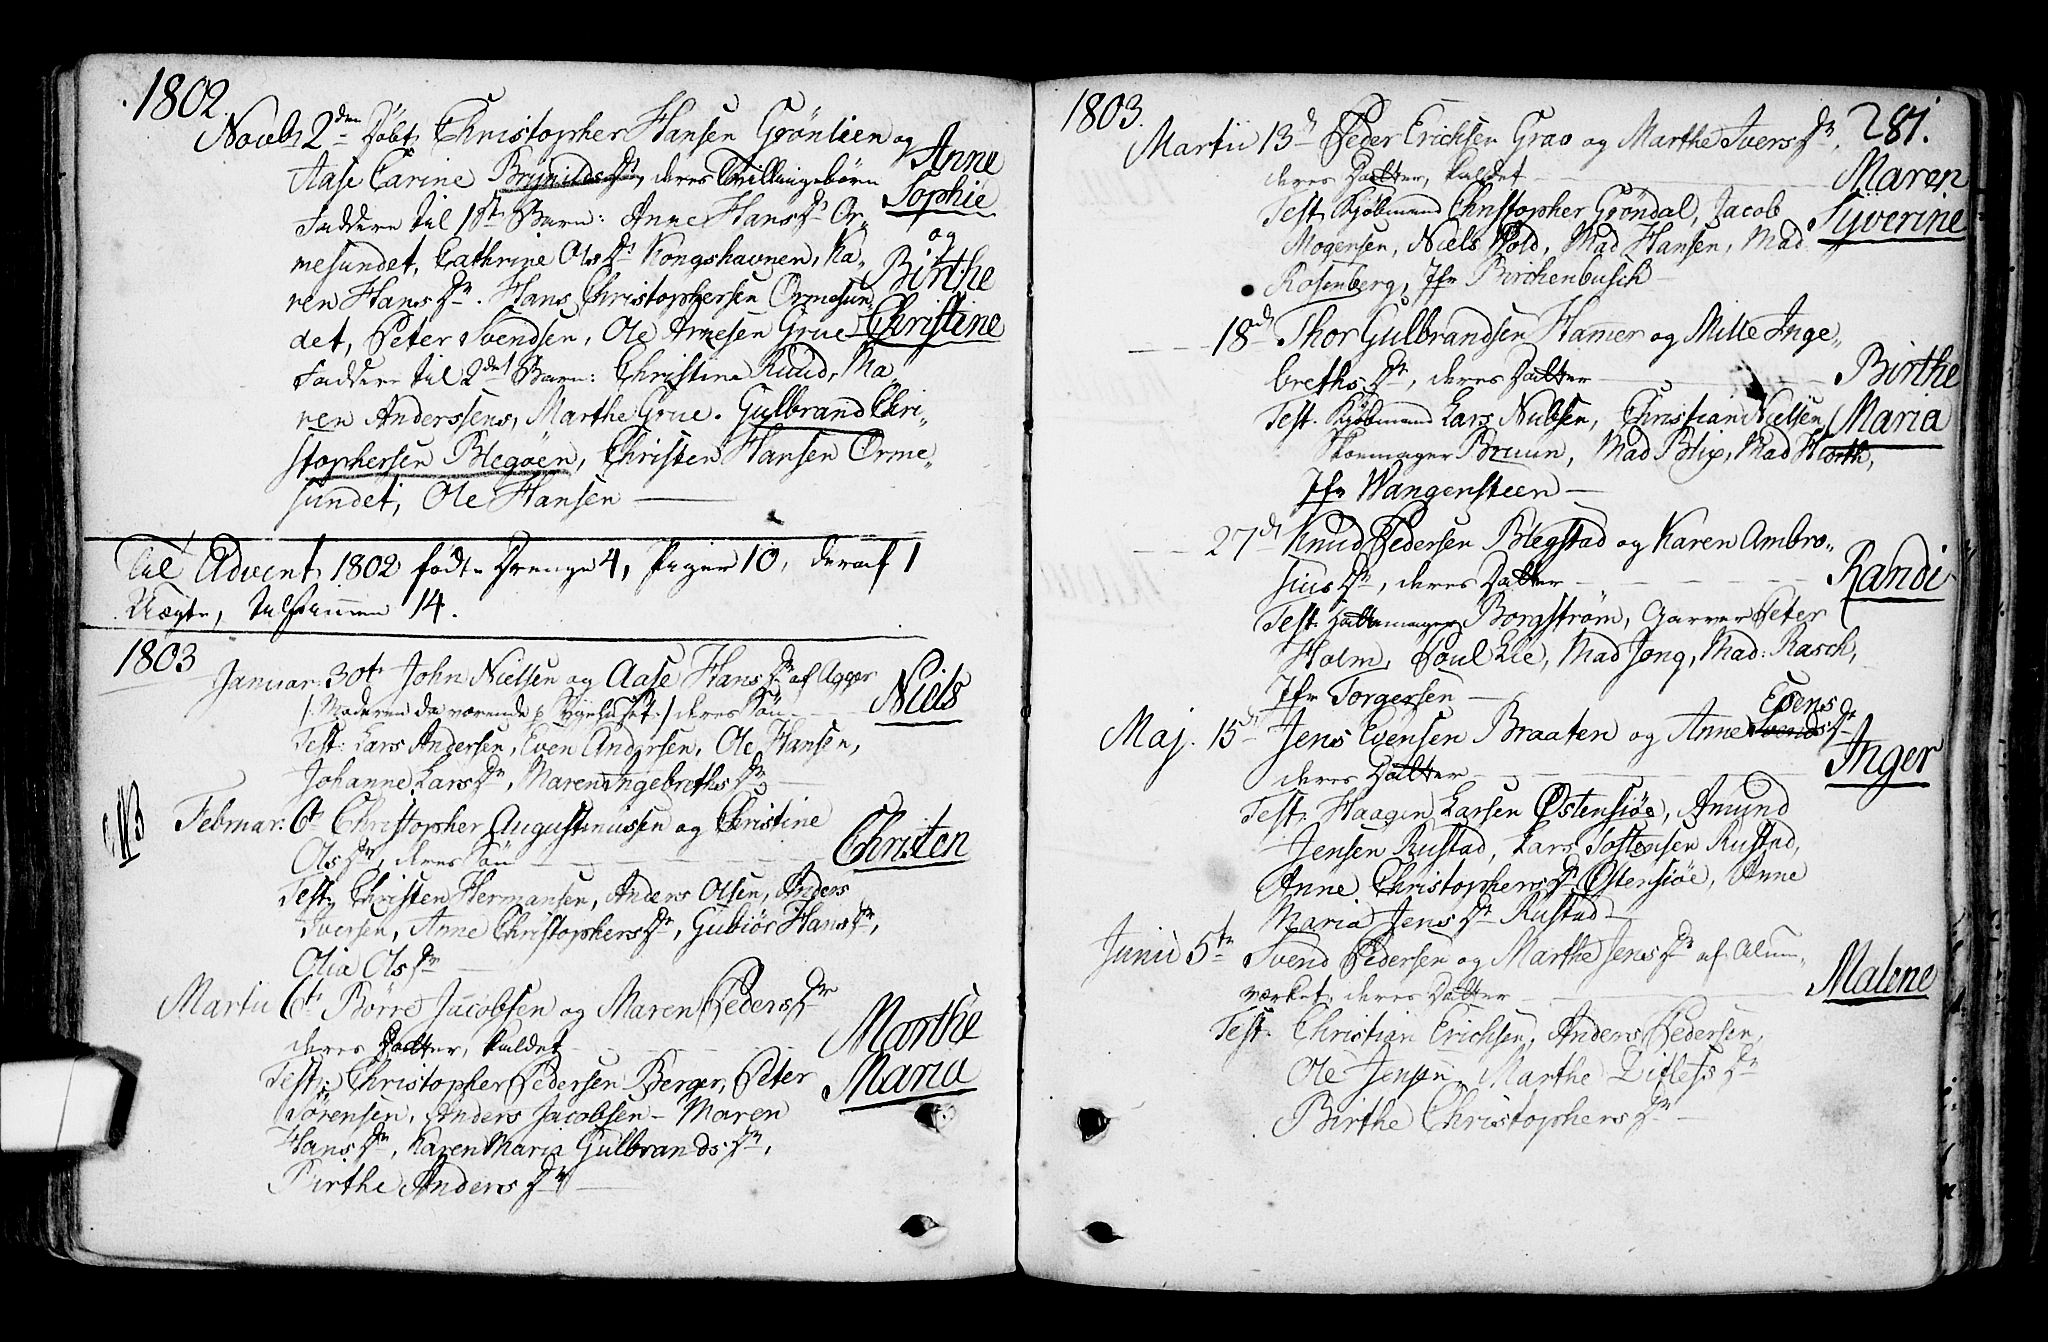 1802.
Novbr 2den Döbt, Christopher Hansen Gröntien og
Aase Carine Brynildsdr, deres Tvillingebörn
Anne
Sophie
og
Birthe
Christine
Faddere til 1st Barn: Anne Hansdr Or-
mesundet, Cathrine Olsdr Kongshavnen, Ka-
ren Hansdr. Hans Christophersen Ormesun-
det, Peter Svendsen, Ole Arnesen Grue
Faddere til 2det Barn: Christine Ruud, Ma
ren Anderssens, Marthe Grue. Gulbrand Chri-
stophersen Blegöen, Christen Hansen Orme-
sundet, Ole Hansen
Til Advent 1802 födte Drenge 4, Piger 10, deraf 1
Uægte, tilsammen 14.
1803
Januar: 30t John Nielsen og Aase Hansdr af Agger
/: Moderen da værende :/ deres Sön
Niels
Test: Lars Andersen, Even Andersen, Ole Hansen,
Johanne Larsdr, Maren Ingebrethsdr
NB
Februar: 6t Christopher Augustinussen og Christine
Olsdr, deres Sön
Christen
Test: Christen Hermansen, Anders Olsen, Anders
Iversen, Anne Christophersdr, Gubiör Hansdr,
Olia Olsdr
Martii 6t Börre Jacobsen og Maren Pedersdr
deres Datter, kaldet
Marthe
Maria
Test: Christopher Pedersen Berger, Peter
Sörensen, Anders Jacobsen - Maren
Hansdr, Karen Maria Gulbrandsdr,
Birthe Andersdr
1803.
281.
Martii 13d Peder Erichsen Grao og Marthe Iversdr,
deres Datter, kaldet
Maren
Syverine
Test: Kjöbmand Christopher Gröndal, Jacob
Mogensen, Niels Wold, Mad Hansen, Mad
Rosenberg, Jfr Birchenbusch
18d Thor Gulbrandsen Hamer og Mille Inge-
brethsdr, deres Datter
Birthe
Maria
Test: Kjöbmand Lars Nielsen, Christian Nielsen,
Skoemager Bruun, Mad Blix, Mad Hiorth,
Jfr Wangensteen
27d Knud Pedersen Blegstad og Karen Ambro-
siusdr, deres Datter
Randi
Test: Hattemager Borgström, Garver Peter
Holm, Poul Lie, Mad Jong, Mad: Rasch,
Jfr Torgersen
Maj. 15d Jens Evensen Braaten og Anne Svends Esensdr
deres Datter
Inger
Test: Haagen Larsen Østensiöe, Amund
Jensen Rustad, Lars Tostensen Rustad,
Anne Christophersdr Østensiöe, Anne
Maria Jensdr Rustad
Junii 5te Svend Pedersen og Marthe Jensdr af Alun-
værket, deres Datter
Malene
Test: Christian Erichsen, Anders Pedersen,
Ole Jensen, Marthe Ditlefsdr
Birthe Christophersdr